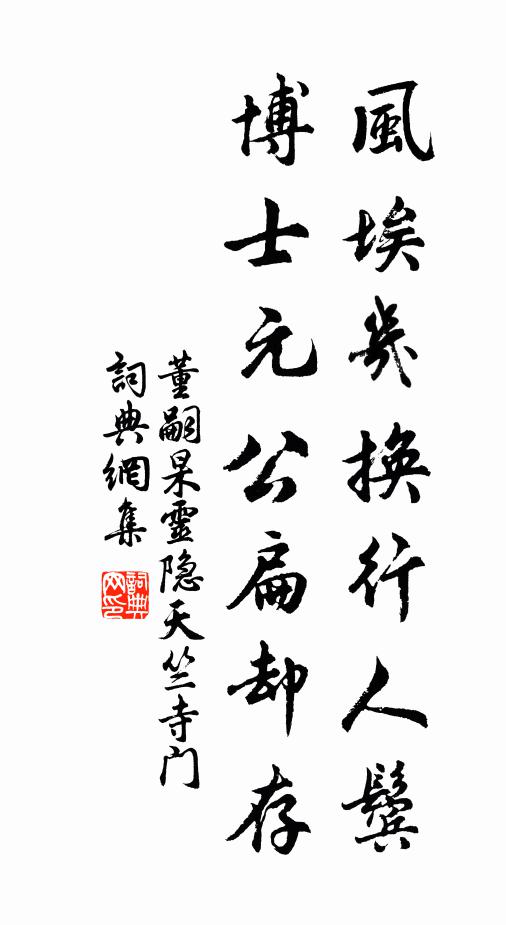 風埃幾換行人鬢
博士元公扁却存
董嗣杲靈隐天竺寺门
詞典網集
詞典
网印